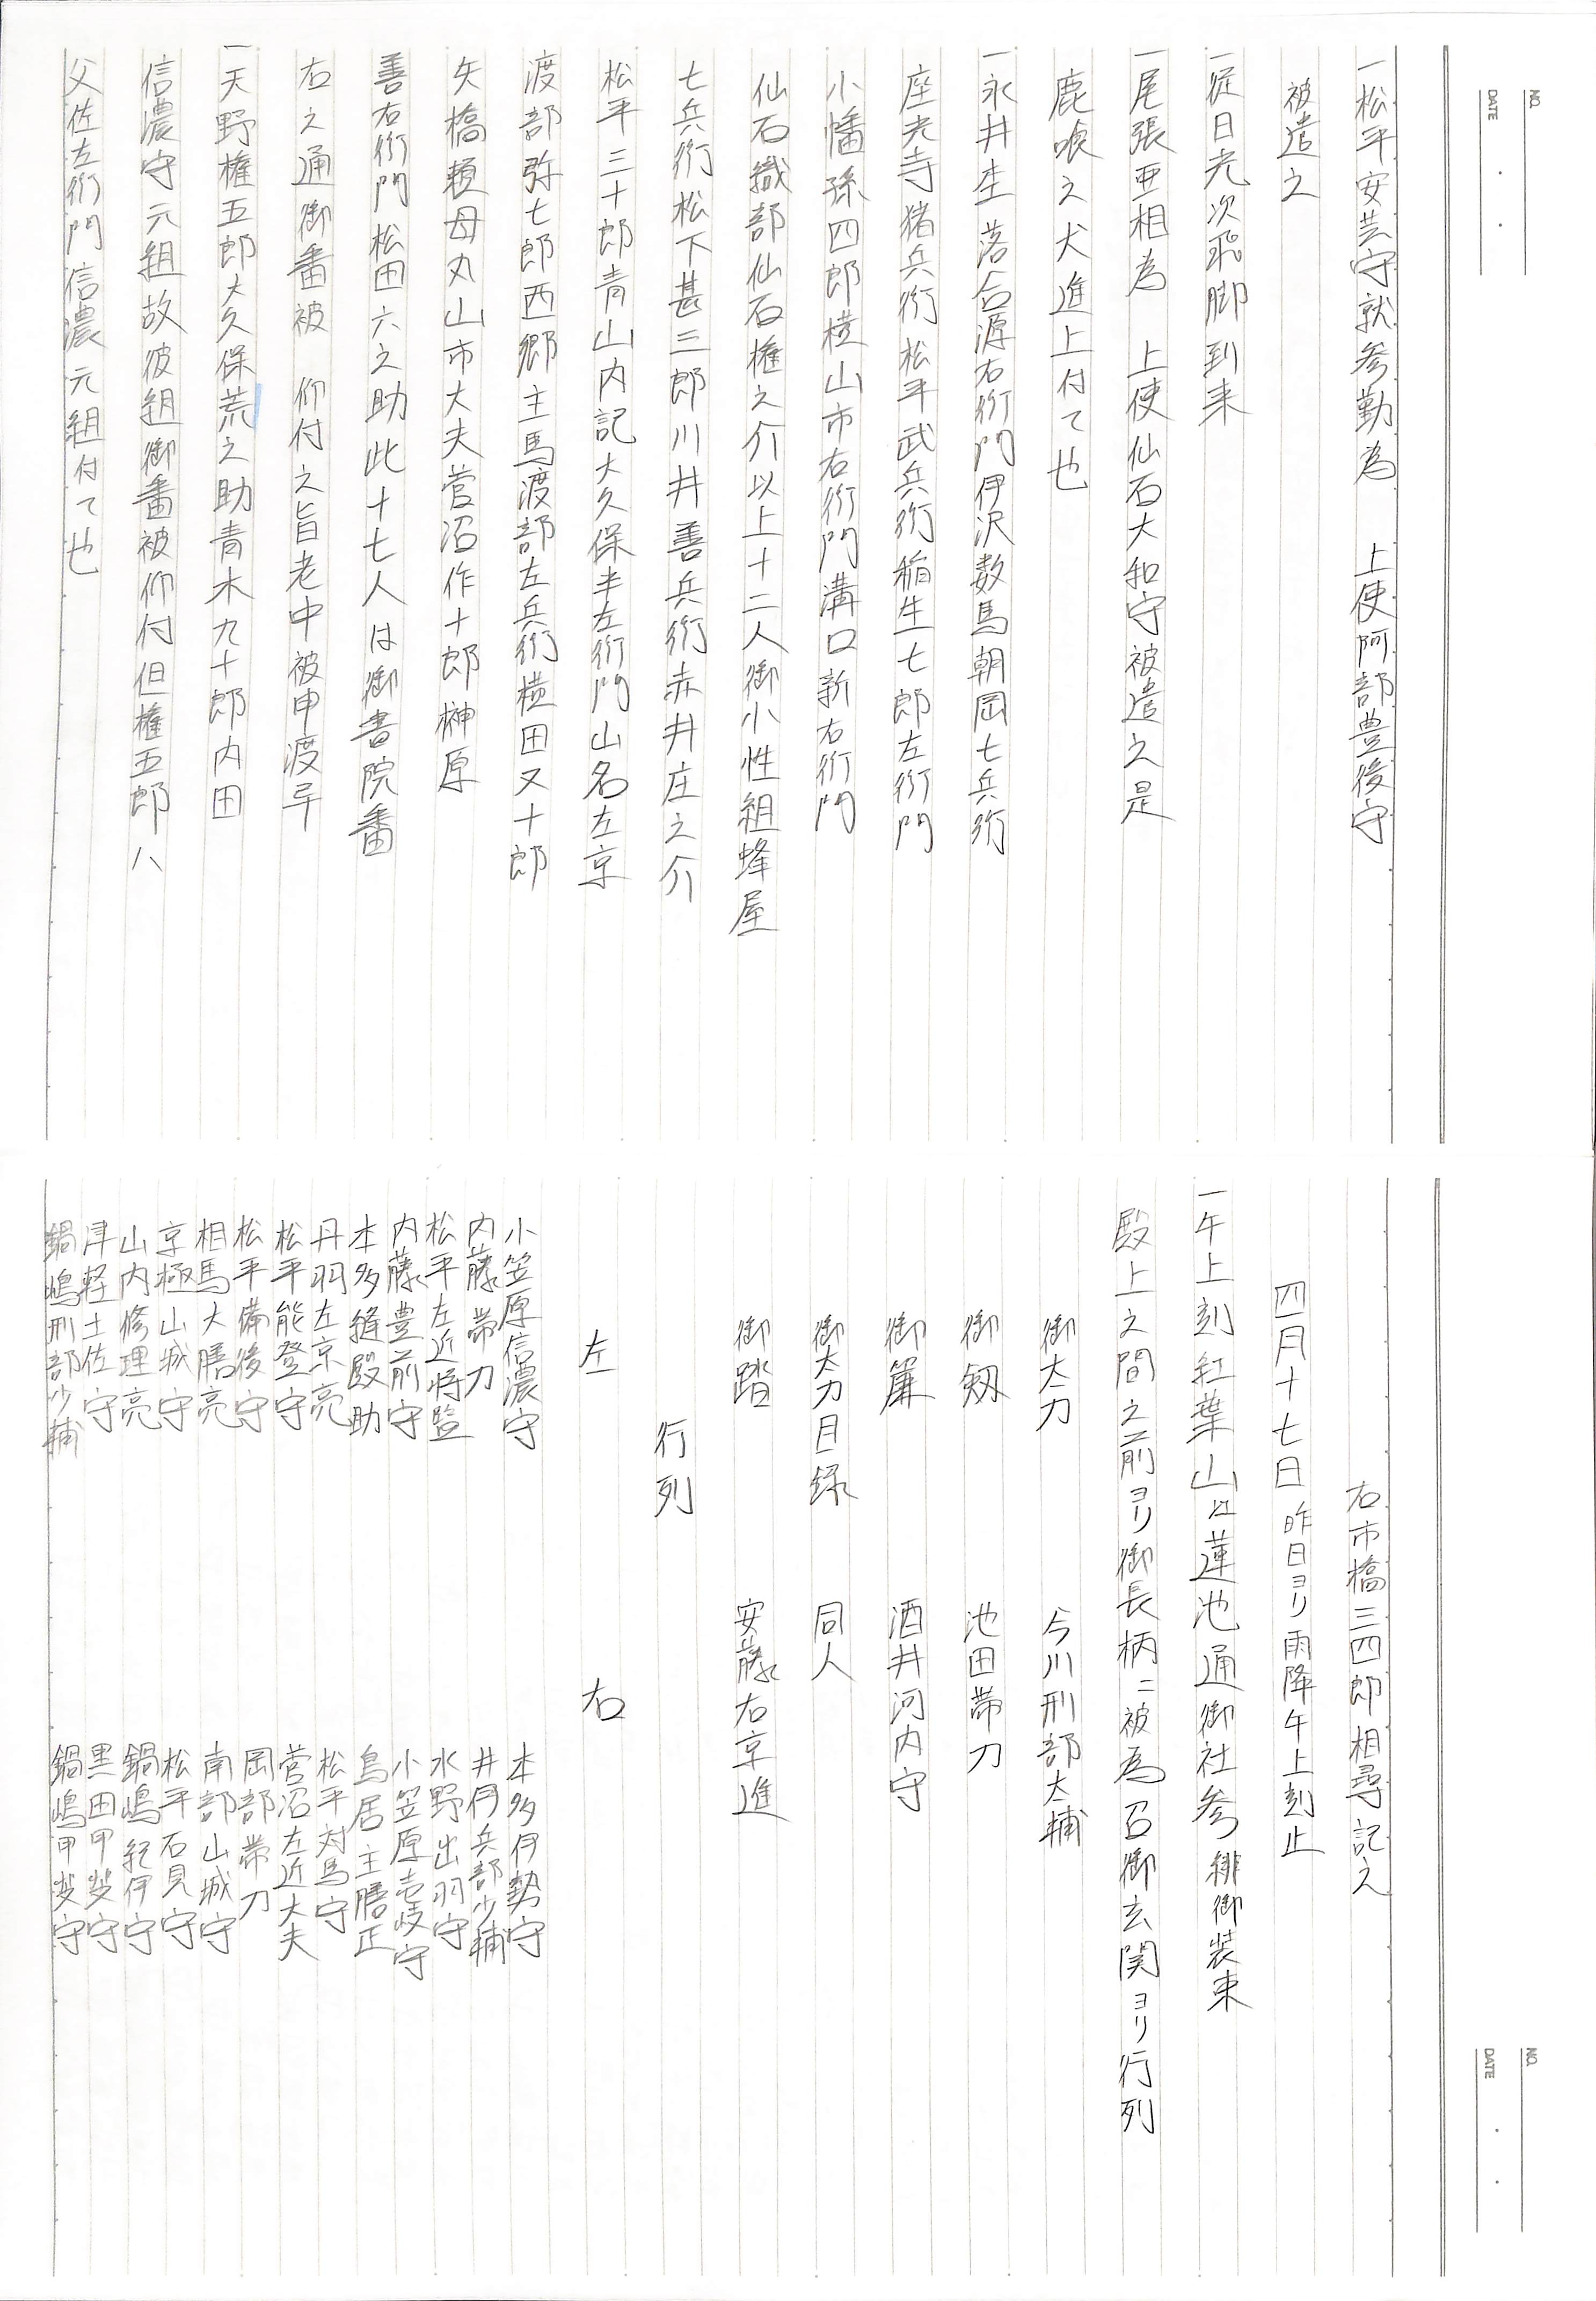 NO.
DATE
一松平安芸守就参勤為　上使阿部豊後守
被遣之
一従日光次飛脚到来
一尾張亜相為　上使仙石大和守被遣之是
鹿喰之犬進上付て也
一永井杢 落合源右衛門伊沢数馬朝岡七兵衛
座光寺猪兵衛松平武兵衛稲生七郎左衛門
小幡孫四郎横山市右衛門溝口新右衛門
仙石織部仙石権之介以上十二人御小性組蜂屋
七兵衛松下甚三郎川井善兵衛赤井庄之介
松平三十郎青山内記大久保半左衛門山名左京
渡部弥七郎西郷主馬渡部左兵衛横田又十郎
矢橋頼母丸山市大夫菅沼作十郎榊原
善右衛門松田六之助此十七人は御書院番
右之通御番被　仰付之旨老中被申渡畢
一天野権五郎大久保荒之助青木九十郎内田
信濃守元組故彼組御番被仰付但権五郎ハ
父佐左衛門信濃元組付て也
NO.
DATE
右市橋三四郎相尋記之
四月十七日 昨日ヨリ雨降午上刻止
一午上刻紅葉山江蓮池通御社参緋御装束
殿上之間之前ヨリ御長柄ニ被為召御玄関ヨリ行列
御太刀　今川刑部太輔
御剱　池田帯刀
御簾　酒井河内守
御太刀目録　同人
御踏　安藤右京進
行列
左　右
小笠原信濃守　本多伊勢守
内藤帯刀　井伊兵部少輔
松平左近将監　水野出羽守
内藤豊前守　小笠原壱岐守
本多縫殿助　鳥居主膳正
丹羽左京亮　松平対馬守
松平能登守　菅沼左近大夫
松平備後守　岡部帯刀
相馬大膳亮　南部山城守
京極山城守　松平石見守
山内修理亮　鍋嶋紀伊守
津軽土佐守　黒田甲斐守
鍋嶋刑部少輔　鍋嶋甲斐守